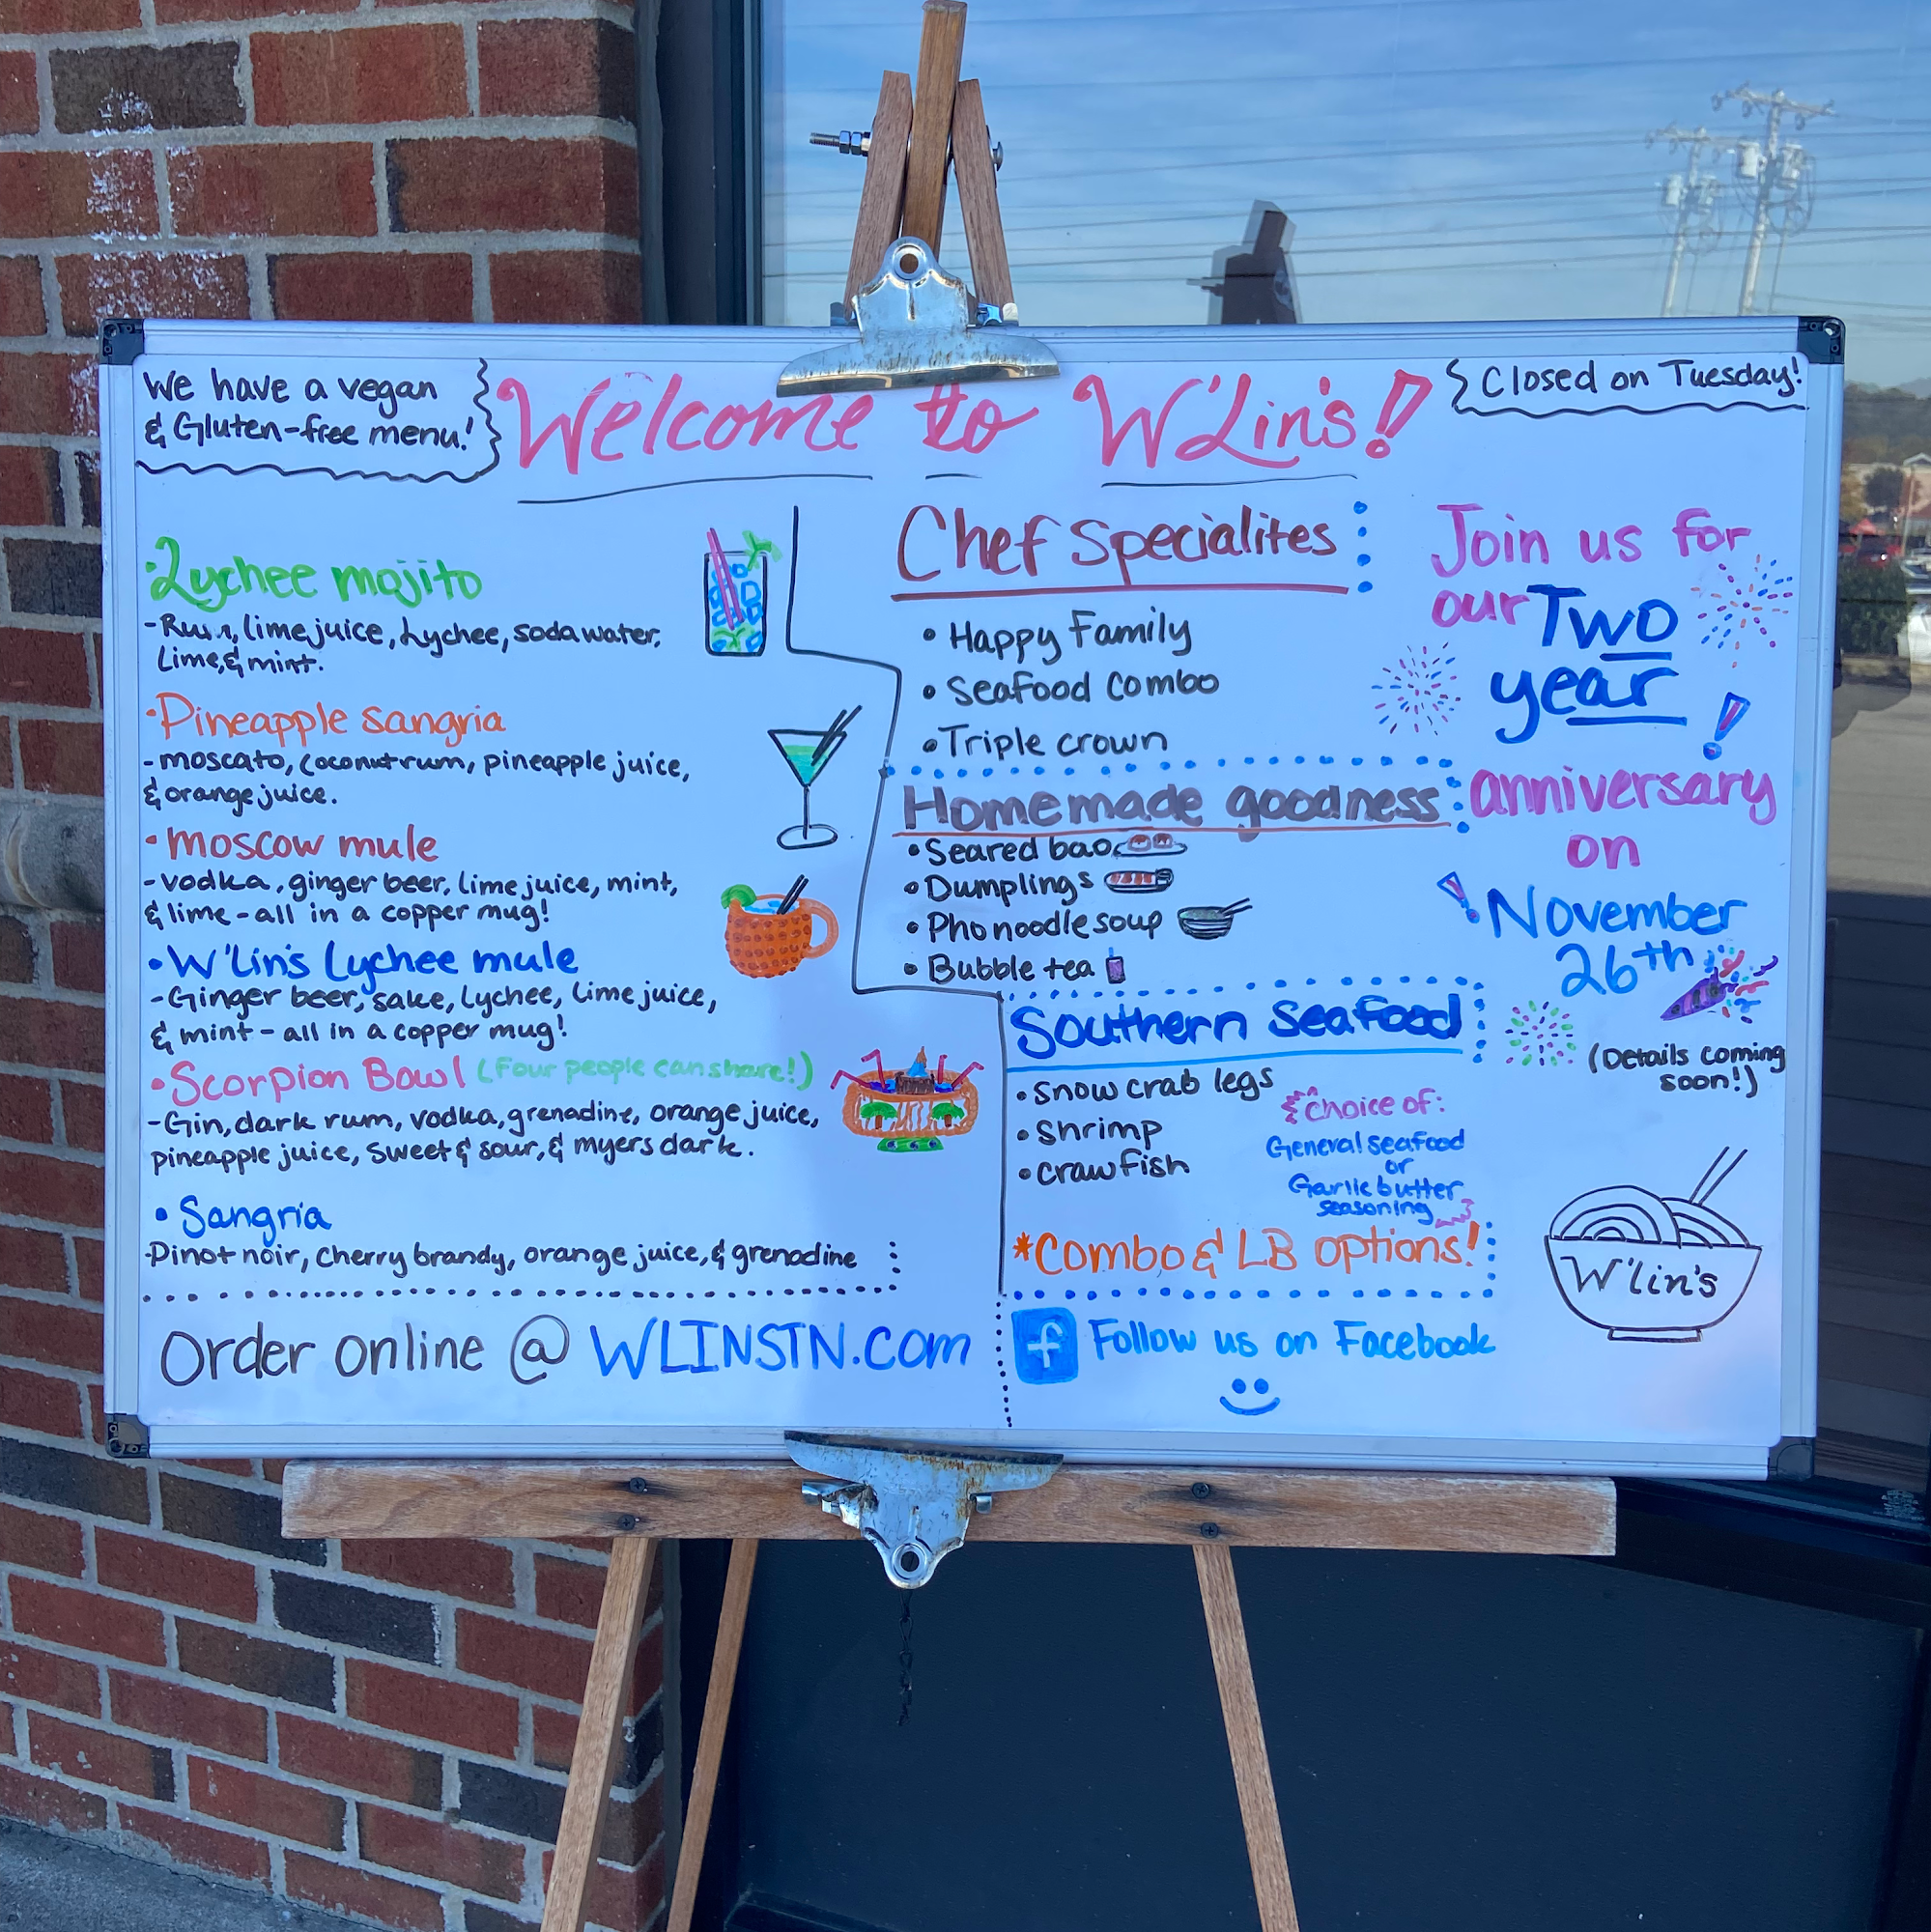 We have a vegan
& Gluten-free menu!
Welcome to W'Lin's!
Closed on Tuesday!
•Lychee mojito
-Rum, lime juice, Lychee, soda water,
Lime, & mint.
•Pineapple sangria
-moscato, coconut rum, pineapple juice,
& orange juice.
•moscow mule
-vodka, ginger beer, lime juice, mint,
& lime - all in a copper mug!
•W'lin's Lychee mule
-Ginger beer, sake, Lychee, lime juice,
& mint - all in a copper mug!
•Scorpion Bowl (Four people can share!)
-Gin, dark rum, vodka, grenadine, orange juice,
pineapple juice, sweet & sour, & myers dark.
•Sangria
-Pinot noir, Cherry brandy, orange juice, & grenadine
Order online @ WLINSTN.com
Chef Specialites
•Happy Family
•Seafood Combo
•Triple crown
Homemade goodness
•Seared bao
•Dumplings
•Pho noodle soup
•Bubble tea
Southern Seafood
•Snow crab legs
•Shrimp
•Crawfish
Choice of:
General seafood
or
Garlic butter
seasoning
*Combo & LB options!
f Follow us on Facebook
Join us for
our Two
year
!
anniversary
on
! November
26th
(Details coming
soon!)
W'lin's